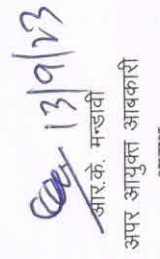 13/9/23
आर.के. मन्डावी
अपर आयुक्त आबकारी